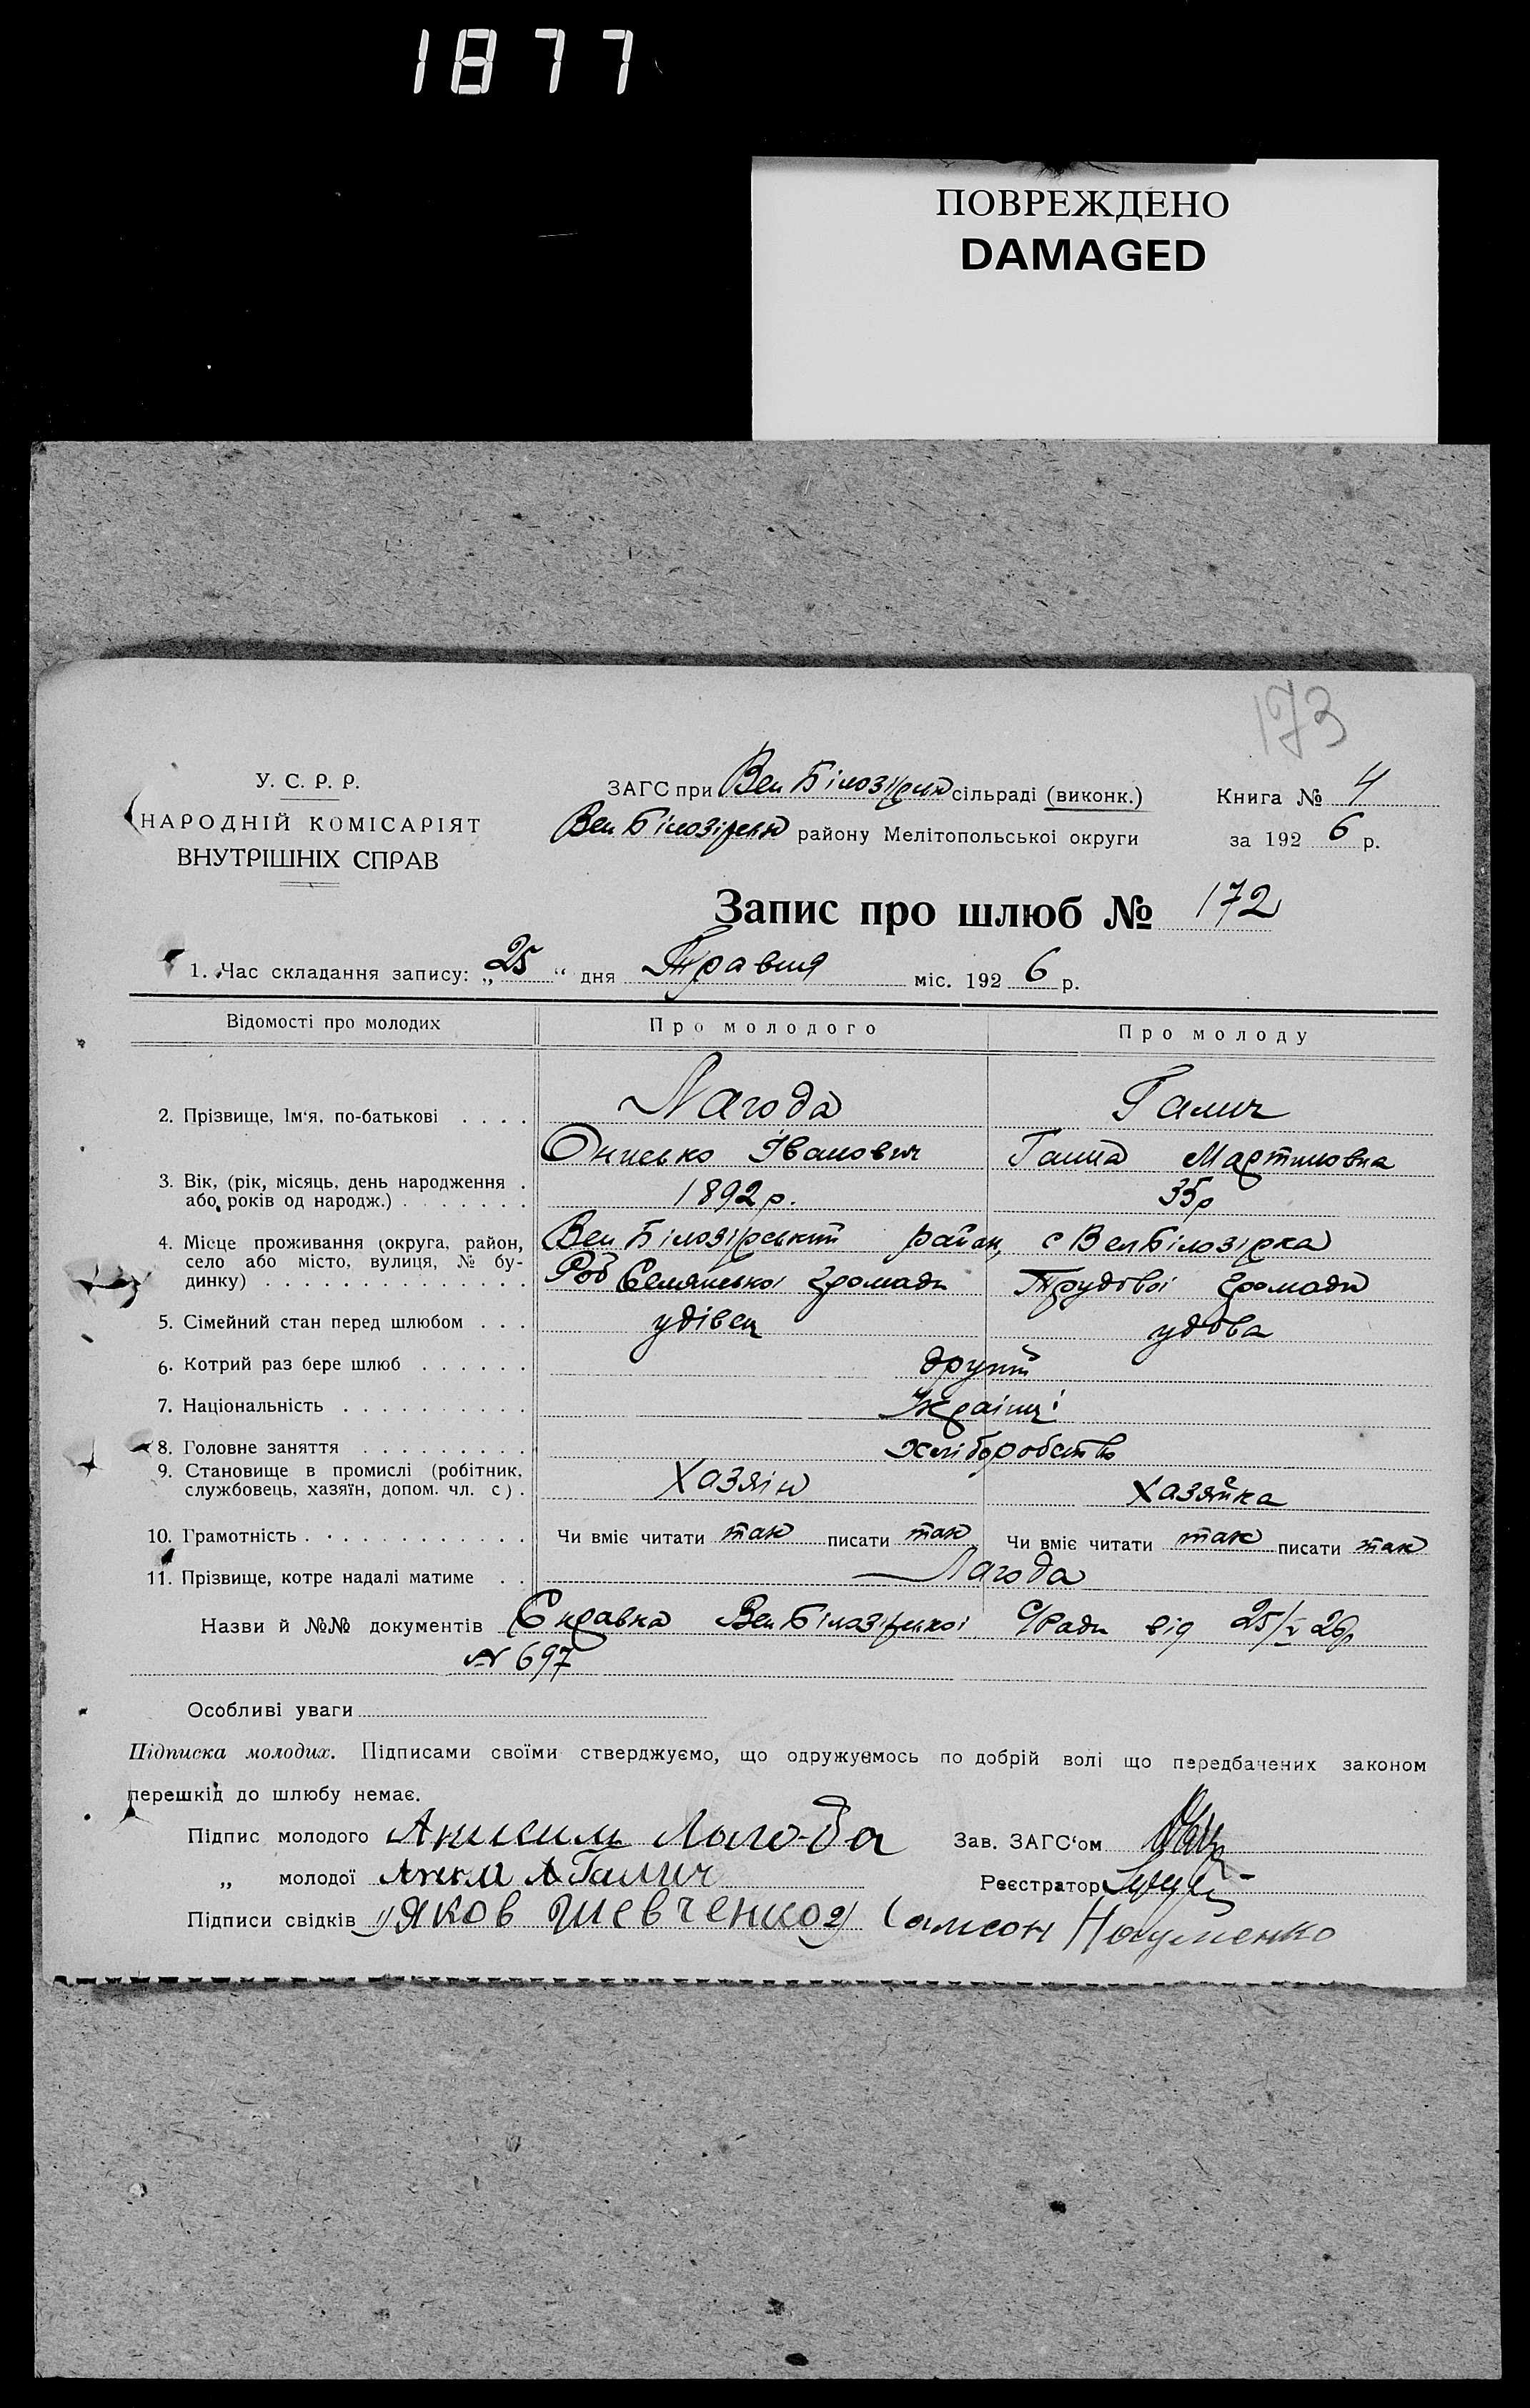 1877
ПОВРЕЖДЕНО
DAMAGED
173
У. С. Р. Р.
НАРОДНІЙ КОМІСАРІЯТ
ВНУТРІШНІХ СПРАВ
ЗАГС при Вел Білозірск сільраді (виконк.)
Вел Білозірськ району Мелітопольської округи
Книга № 4
за 1926 р.
Запис про шлюб № 172
1. Час складання запису: „25“ дня Травня міс. 1926 р.
Відомості про молодих Про молодого Про молоду
2. Прізвище, Ім'я, по-батькові . . . . Лагода Галич
Онисько Іванович Ганна Мартиновна
3. Вік, (рік, місяць, день народження .
або, років од народж.) . . . . . . . 1892 р. 35р
4. Місце проживання (округа, район, Вел Білозірський район, с Вел Білозірка
село або місто, вулиця, № бу-
динку) . . . . . . . . . . . . . . Роб Селянської громади Трудової громади
5. Сімейний стан перед шлюбом . . . удівец удова
6. Котрий раз бере шлюб . . . . . . другий
7. Національність . . . . . . . . . . Українці
8. Головне заняття . . . . . . . . . хліборобство
9. Становище в промислі (робітник,
службовець, хазяїн, допом. чл. с) . Хазяін Хазяйка
10. Грамотність . . . . . . . . . . . . Чи вміє читати так писати так Чи вміє читати так писати так
11. Прізвище, котре надалі матиме . . Лагода
Назви й №№ документів Справка Вел Білозірської С/Ради від 25/V 26р
№ 697
Особливі уваги
Підписка молодих. Підписами своїми стверджуємо, що одружуємось по добрій волі що передбачених законом
перешкід до шлюбу немає.
Підпис молодого Анисим Лагода Зав. ЗАГС'ом
„ молодої Анна Галич Реєстратор
Підписи свідків 1) Яков Шевченко 2) Самсон Науменко